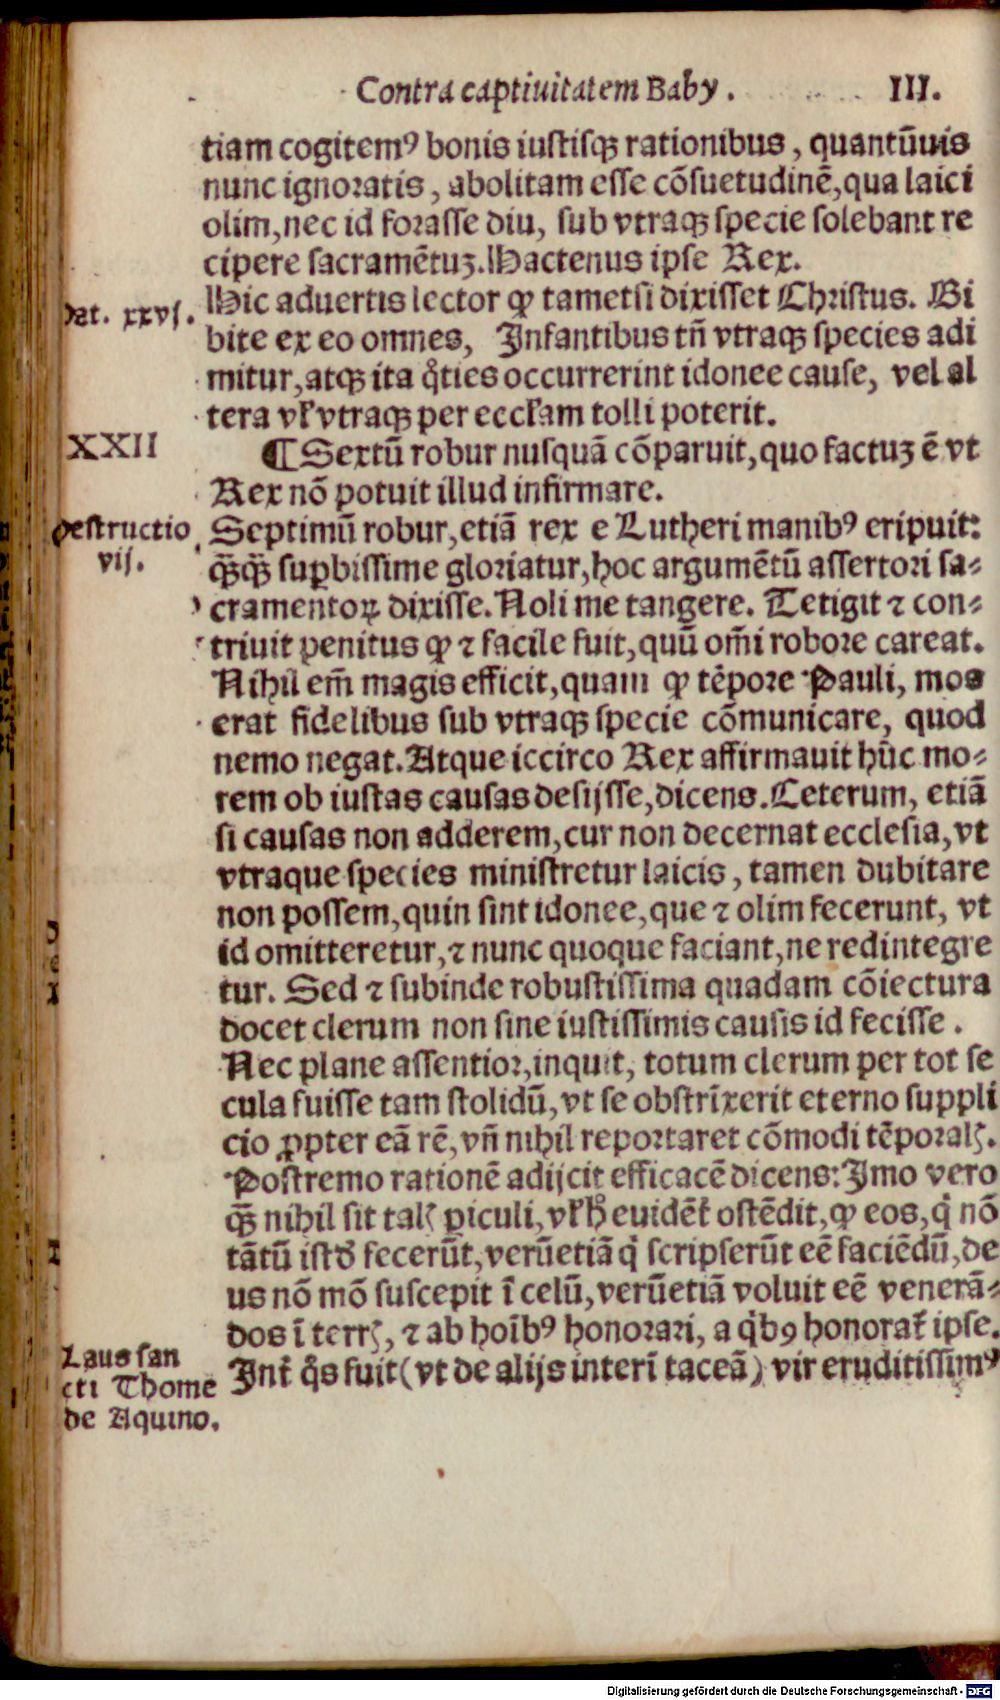 Contra captiuitatem Baby. III.
tiam cogitemꝰ bonis iustisqꝫ rationibus, quantũuis
nunc ignoratis, abolitam esse cõsuetudinẽ, qua laici
olim, nec id forasse diu, sub vtraqꝫ specie solebant re
cipere sacramẽtuꝫ. Hactenus ipse Rex.
Hic aduertis lector ꝙ tametsi dixisset Christus. Bi
Mat. xxvj.
bite ex eo omnes, Infantibus tñ vtraqꝫ species adi
mitur, atqꝫ ita q̊ties occurrerint idonee cause, vel al
tera vl̕ vtraqꝫ per eccl̕am tolli poterit.
XXII
¶ Sextũ robur nusquã cõparuit, quo factuꝫ ẽ vt
Rex nõ potuit illud infirmare.
Destructio
vij.
Septimũ robur, etiã rex e Lutheri manibꝰ eripuit:
qꝫ̃qꝫ̃ suꝑbissime gloriatur, hoc argumẽtũ assertori sa⸗
cramentoꝝ dixisse. Noli me tangere. Tetigit ⁊ con⸗
triuit penitus ꝙ ⁊ facile fuit, quũ om̃i robore careat.
Nihil em̃ magis efficit, quam ꝙ tẽpore Pauli, mos
erat fidelibus sub vtraqꝫ specie cõmunicare, quod
nemo negat. Atque iccirco Rex affirmauit hũc mo⸗
rem ob iustas causas desijsse, dicens. Ceterum, etiã
si causas non adderem, cur non decernat ecclesia, vt
vtraque species ministretur laicis, tamen dubitare
non possem, quin sint idonee, que ⁊ olim fecerunt, vt
id omitteretur, ⁊ nunc quoque faciant, ne redintegre
tur. Sed ⁊ subinde robustissima quadam cõiectura
docet clerum non sine iustissimis causis id fecisse.
Nec plane assentior, inquit, totum clerum per tot se
cula fuisse tam stolidũ, vt se obstrĩxerit eterno suppli
cio ꝓpter eã rẽ, vñ nihil reportaret cõmodi tẽporalꝭ.
Postremo rationẽ adijcit efficacẽ dicens: Imo vero
qꝫ̃ nihil sit talꝭ ꝑiculi, vl̕ hͦ euidẽt̕ ostẽdit, ꝙ eos, q̇ nõ
tãtũ istð fecerũt, verũetiã q̇ scripserũt eẽ faciẽdũ, de
us nõ mõ suscepit ĩ celũ, verũetiã voluit eẽ venerã⸗
dos ĩ terrꝭ, ⁊ ab hoĩbꝰ honorari, a q̇bꝰ honorat̕ ipse.
Laus san
cti Thome
de Aquino.
Int̕ q̊s fuit (vt de alijs interĩ taceã) vir eruditissimꝰ
Digitalisierung gefördert durch die Deutsche Forschungsgemeinschaft - DFG